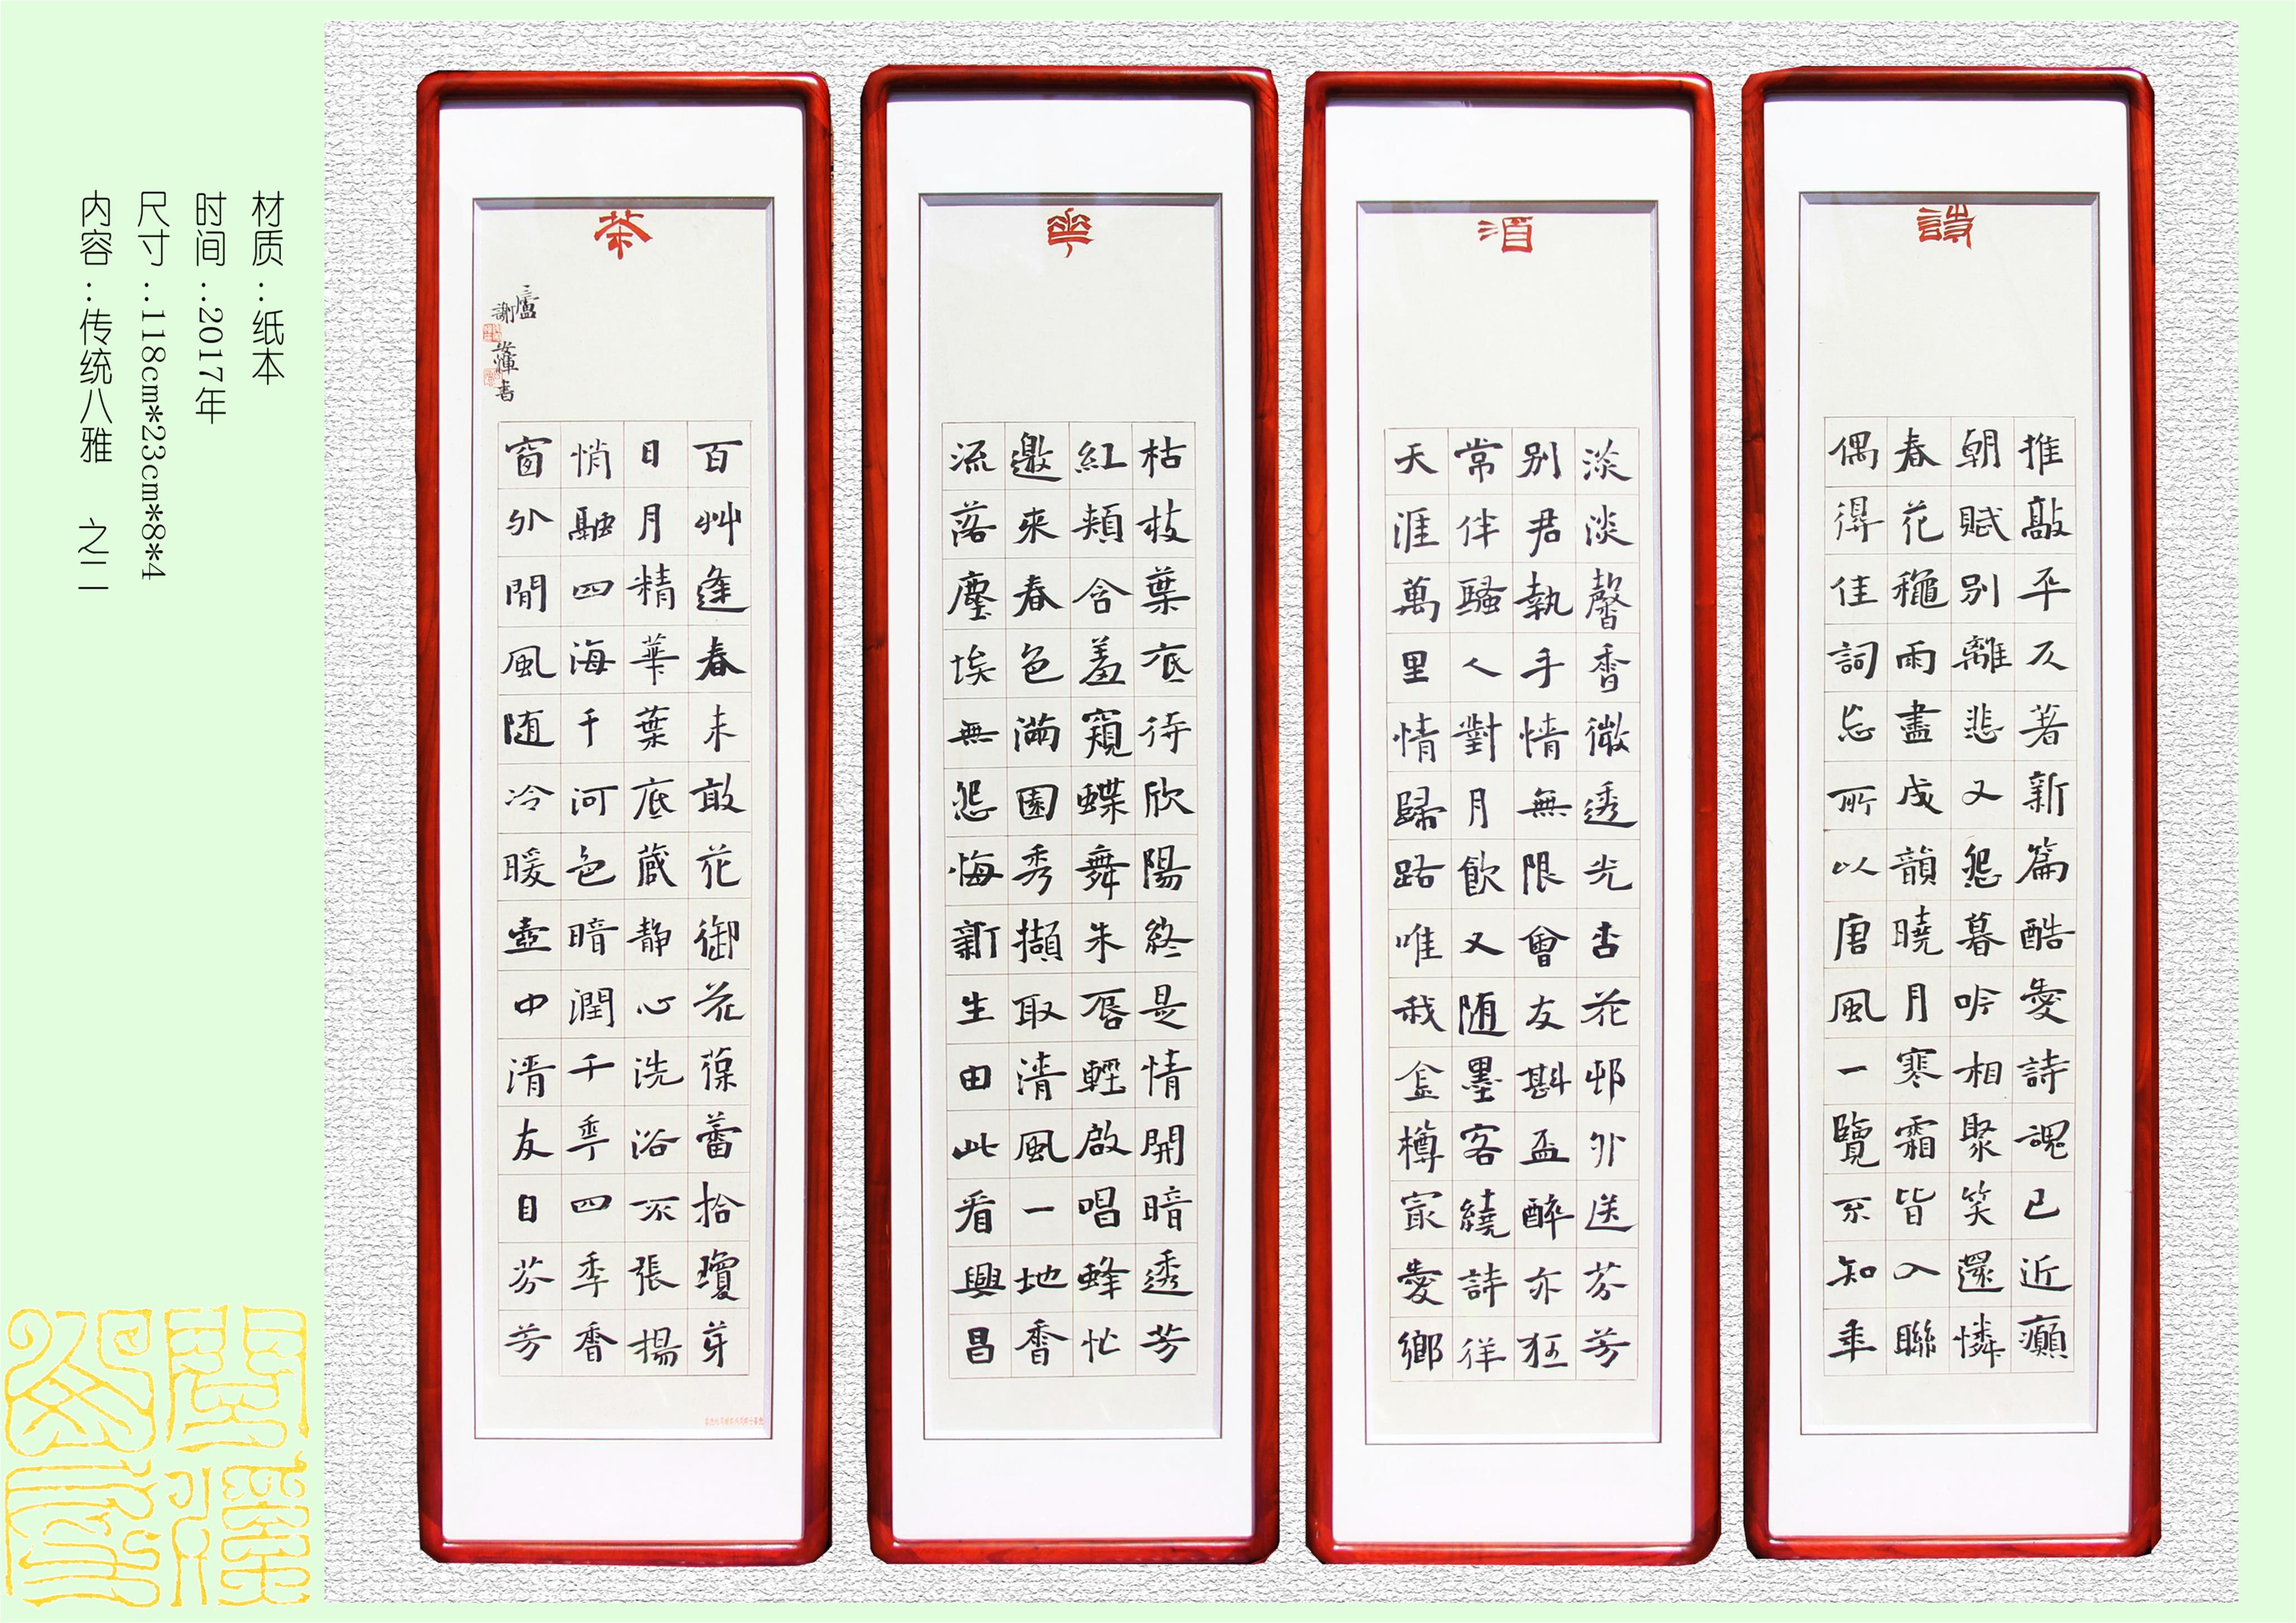 材质：纸本
时间：2017年
尺寸：118cm*23cm*8*4
内容：传统八雅 之二
詩
推敲平仄著新篇酷愛詩魂已近癲
朝賦別離悲又怨暮吟相聚笑還憐
春花穐雨盡成韻曉月寒霜皆入聯
偶得佳詞忘所以唐風一覽不知年
酒
淡淡馨香微透光杏花邨外送芬芳
別君執手情無限會友斟盃醉亦狂
常伴騷人對月飲又随墨客繞詩徉
天涯萬里情歸路唯我金樽最愛鄉
華
枯枝葉底待欣陽終是情開暗透芳
紅頬含羞窺蝶舞朱唇輕啟唱蜂忙
邀來春色滿園秀擷取清風一地香
流落塵埃無怨悔新生由此看興昌
茶
百艸逢春未敢花御花葆蕾拾瓊芽
日月精華葉底蔵静心洗浴不張揚
悄融四海千河色暗潤千秊四季香
窗外閒風随冷暖壺中清友自芬芳
三廬
謝 輝書